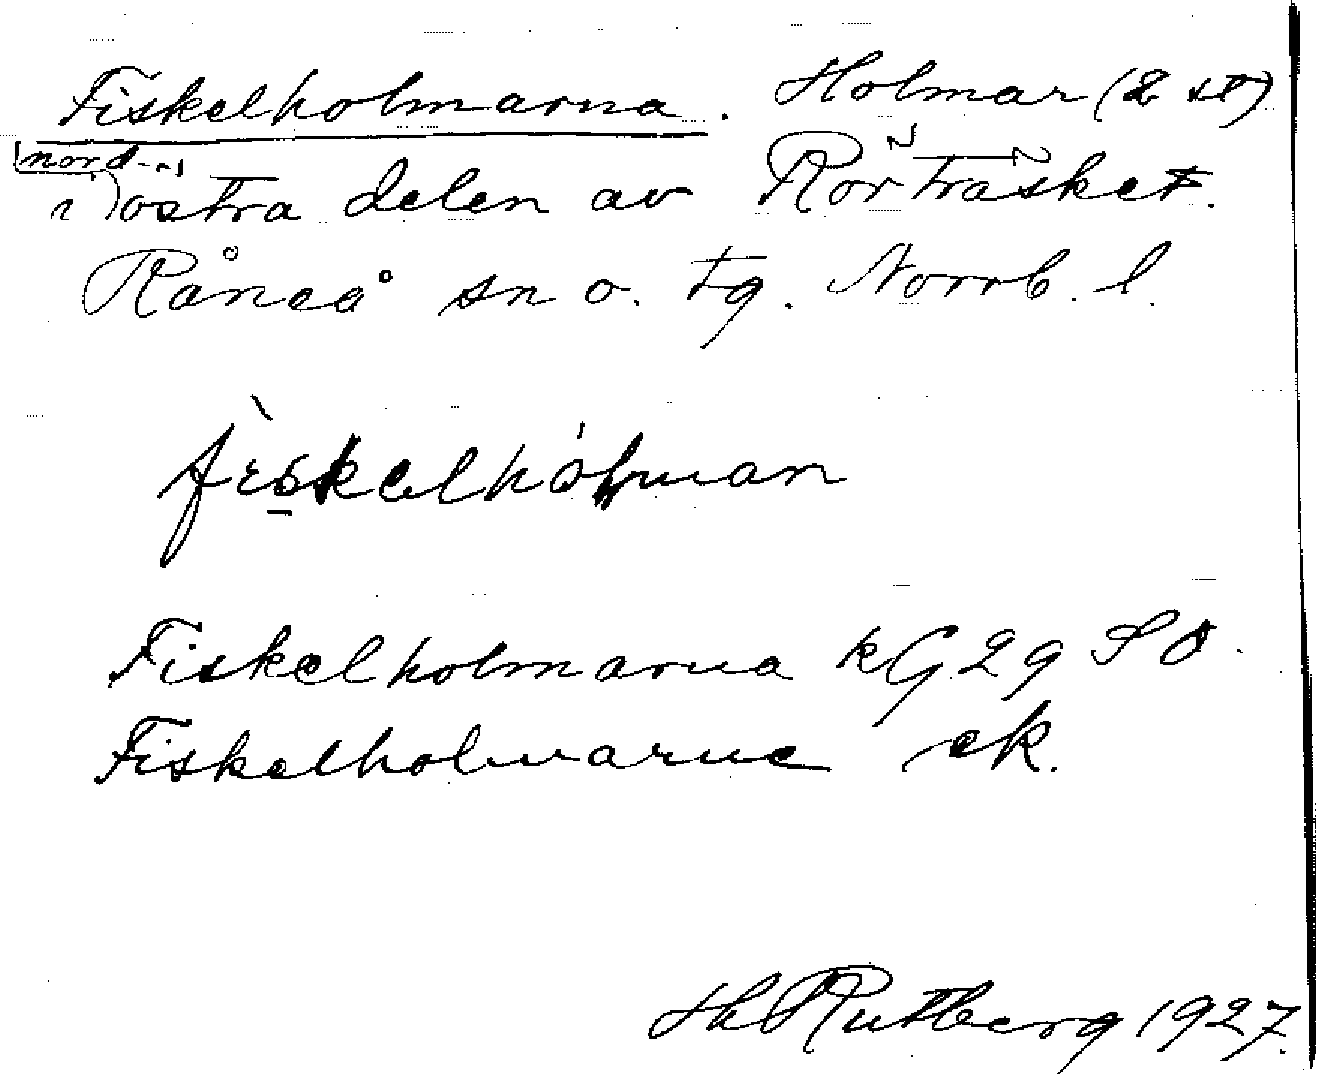 Fiskelholmarna. Holmar (2 st)
i nordöstra delen av Rörträsket.
Råneå sn o. tg. Norrb. l.
fiskelhólman
Fiskelholmarna kG 29 SO.
Fiskelholmarne ek.
Hh Rutberg 1927.